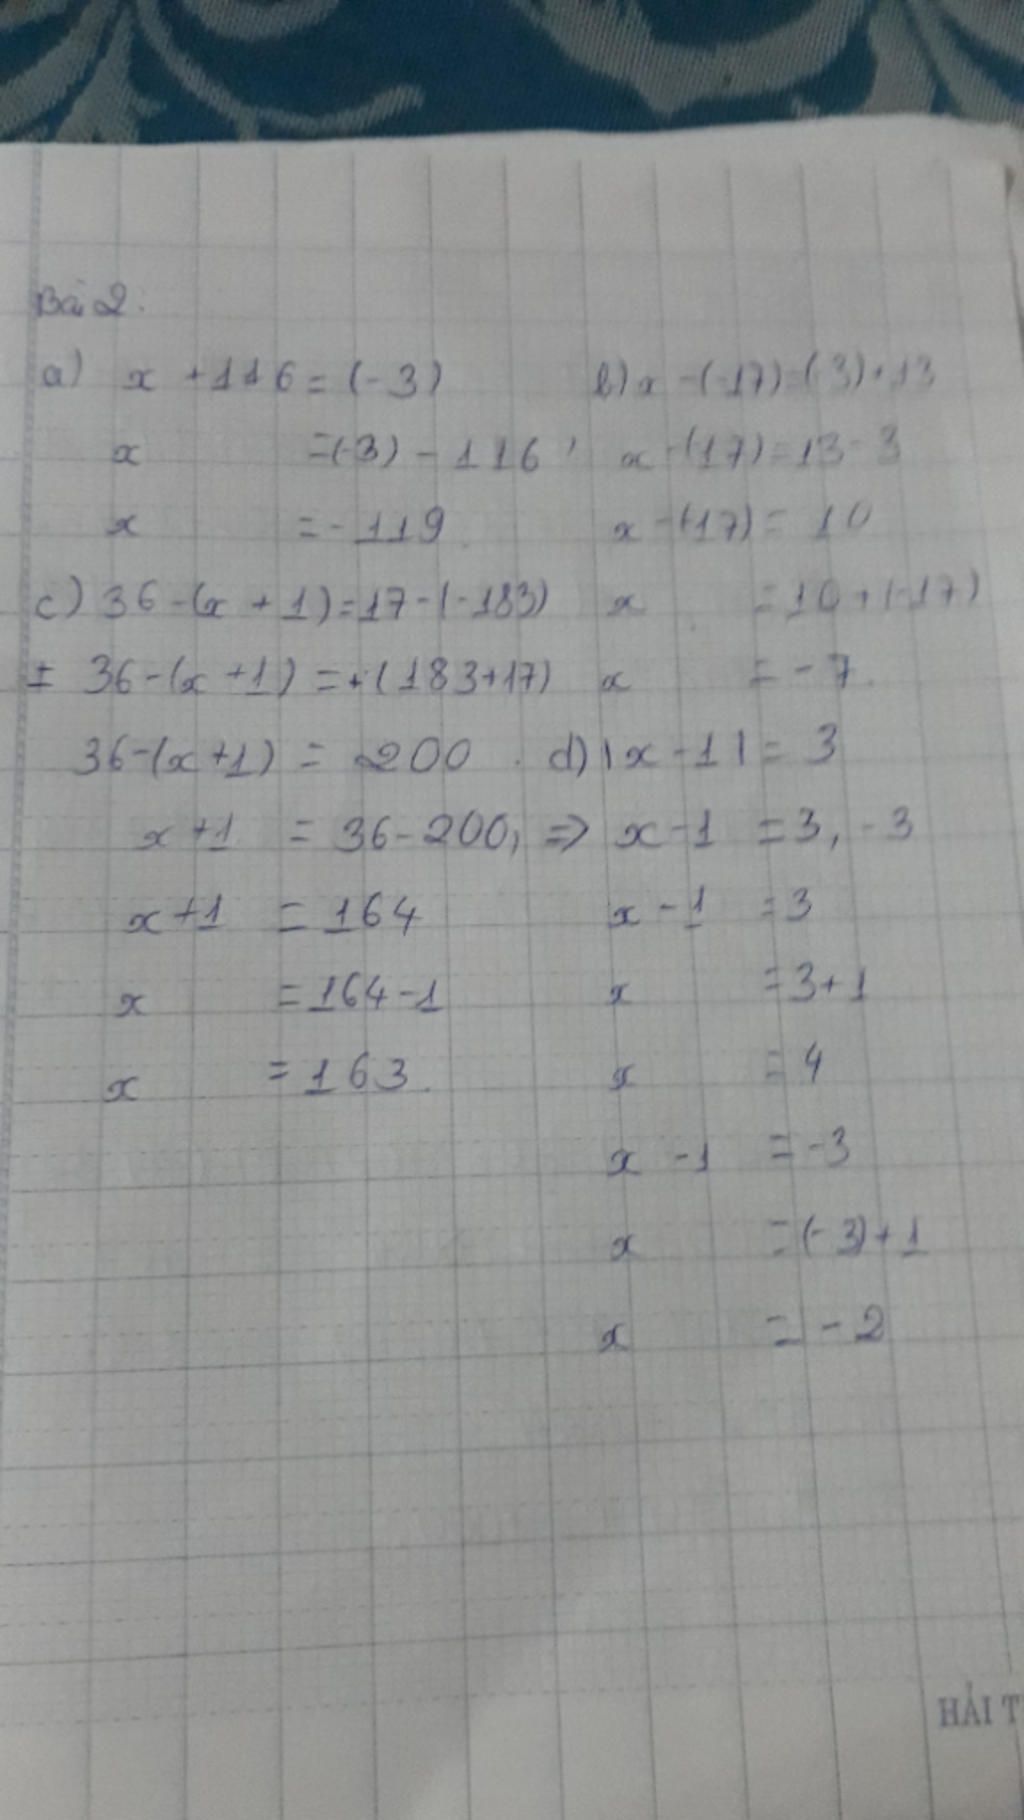 Bài 2:
a) x + 116 = (-3)
x = (-3) - 116
x = -119
b) x - (-17) = (-3) + 13
x - (-17) = 13 - 3
x - (-17) = 10
x = 10 + (-17)
x = -7
c) 36 - (x + 1) = 17 - (-183)
± 36 - (x + 1) = + (183 + 17)
36 - (x + 1) = 200
x + 1 = 36 - 200
x + 1 = 164
x = 164 - 1
x = 163.
d) |x - 1| = 3
=> x - 1 = 3, -3
x - 1 = 3
x = 3 + 1
x = 4
x - 1 = -3
x = (-3) + 1
x = -2
HẢI T